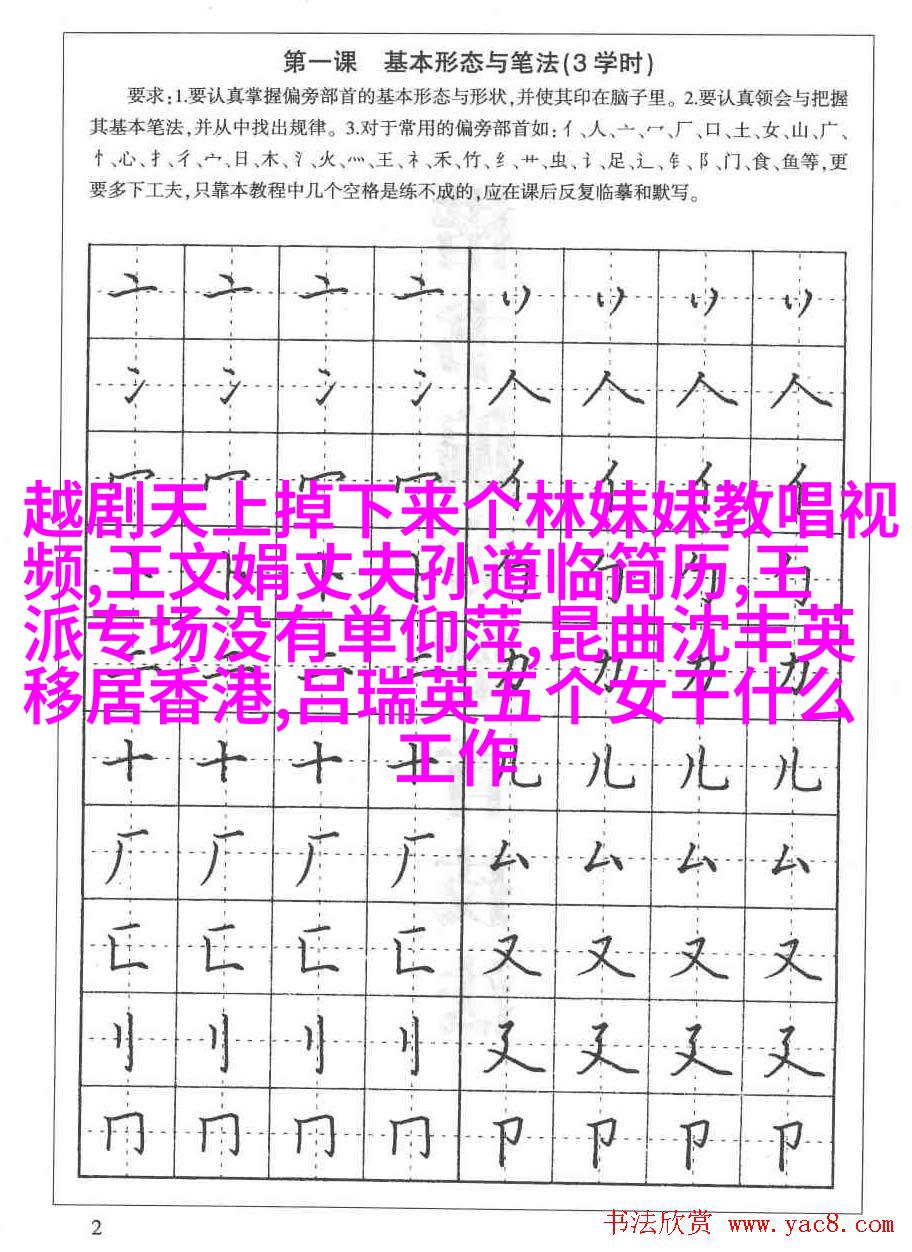 第一课 基本形态与笔法(3学时)
要求:1.要认真掌握偏旁部首的基本形态与形状,并使其印在脑子里。2.要认真领会与把握
其基本笔法,并从中找出规律。3.对于常用的偏旁部首如:亻、人、亠、冖、厂、口、土、女、山、广、
忄、心、扌、彳、宀、日、木、氵、火、灬、王、礻、禾、竹、纟、艹、虫、讠、足、辶、钅、阝、门、食、鱼等,更
要多下工夫,只靠本教程中几个空格是练不成的,应在课后反复临摹和默写。
亠 亠 亠 亠 丷 丷 丷 丷
冫 冫 冫 冫 人 人 人 人
冖 冖 冖 冖 亻 亻 亻 亻
越剧天上掉下来个林妹妹教唱视
频,王文娟丈夫孙道临简历,王
派专场没有单仰萍,昆曲沈丰英
移居香港,吕瑞英五个女干什么
工作
二 二 二 二 力 力 力 力
十 十 十 十 儿 儿 儿 儿
厂 厂 厂 厂 厶 厶 厶 厶
匚 匚 匚 匚 又 又 又 又
刂 刂 刂 刂 廴 廴 廴 廴
冂 冂 冂 冂 卩 卩 卩 卩
2
书法欣赏 www.yac8.com